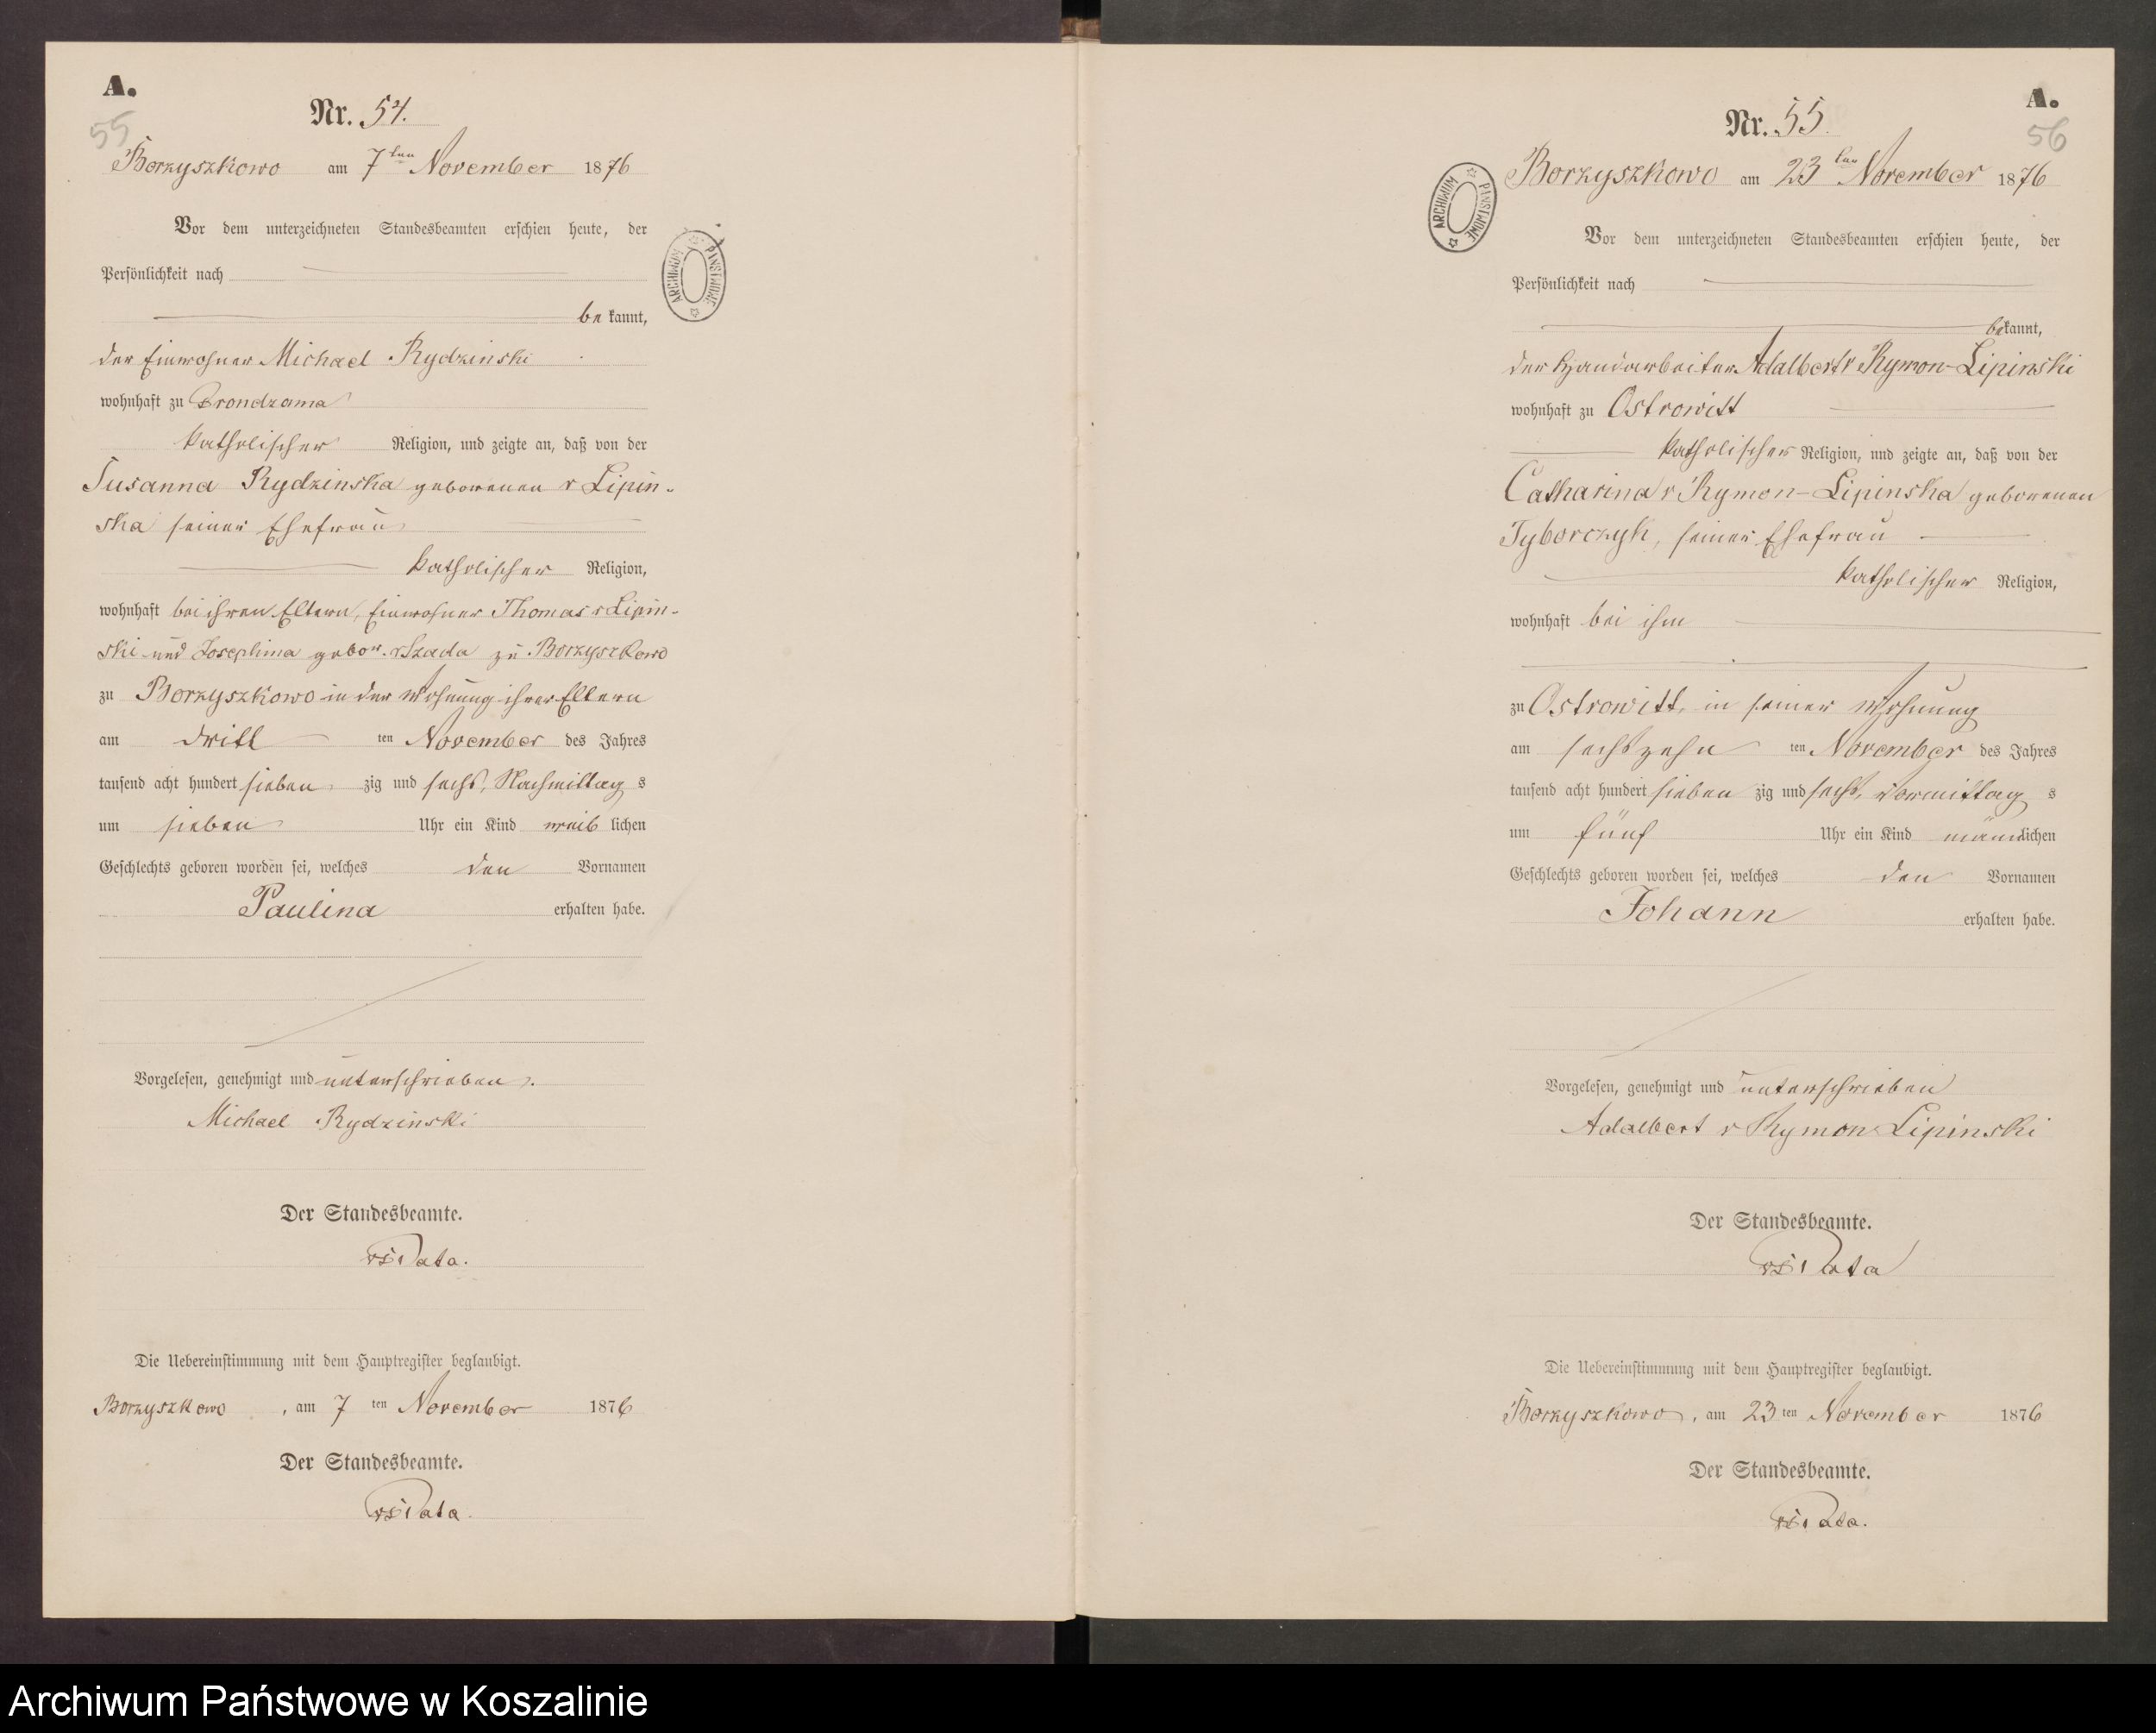 A.
55
Nr. 54.
Borzyszkowo am 7ten November 1876
Vor dem unterzeichneten Standesbeamten erschien heute, der
Persönlichkeit nach
be kannt,
der Einwohner Michael Rydzinski
wohnhaft zu
katholischer Religion, und zeigte an, daß von der
Susanna Rydzinska geborenen v Lipin-
ska seiner Ehefrau
katholischer Religion,
wohnhaft bei ihren Eltern, Einwohner Thomas v Lipin-
ski und Josephina gebor. zu Borzyszkowo
zu Borzyszkowo in der Wohnung ihrer Eltern
am dritt ten November des Jahres
tausend acht hundert sieben zig und sechs, Nachmittag s
um sieben Uhr ein Kind weib lichen
Geschlechts geboren worden sei, welches den Vornamen
Paulina erhalten habe.
Vorgelesen, genehmigt und unterschrieben.
Michael Rydzinski
Der Standesbeamte.
Die Uebereinstimmung mit dem Hauptregister beglaubigt.
Borzyszkowo, am 7 ten November 1876
Der Standesbeamte.
ARCHIWUM PAŃSTWOWE
A.
56
Nr. 55.
Borzyszkowo am 23ten November 1876
Vor dem unterzeichneten Standesbeamten erschien heute, der
Persönlichkeit nach
bekannt,
der Handarbeiter Adalbert v Rymon-Lipinski
wohnhaft zu Ostrowitt
katholischer Religion, und zeigte an, daß von der
Catharina v Rymon-Lipinska geborenen
Tyborczyk, seiner Ehefrau
katholischer Religion,
wohnhaft bei ihm
zu Ostrowitt, in seiner Wohnung
am sechszehn ten November des Jahres
tausend acht hundert sieben zig und sechs, Vormittag s
um fünf Uhr ein Kind männlichen
Geschlechts geboren worden sei, welches den Vornamen
Johann erhalten habe.
Vorgelesen, genehmigt und unterschrieben
Adalbert v Rymon Lipinski
Der Standesbeamte.
Die Uebereinstimmung mit dem Hauptregister beglaubigt.
Borzyszkowo, am 23 ten November 1876
Der Standesbeamte.
ARCHIWUM PAŃSTWOWE
Archiwum Państwowe w Koszalinie